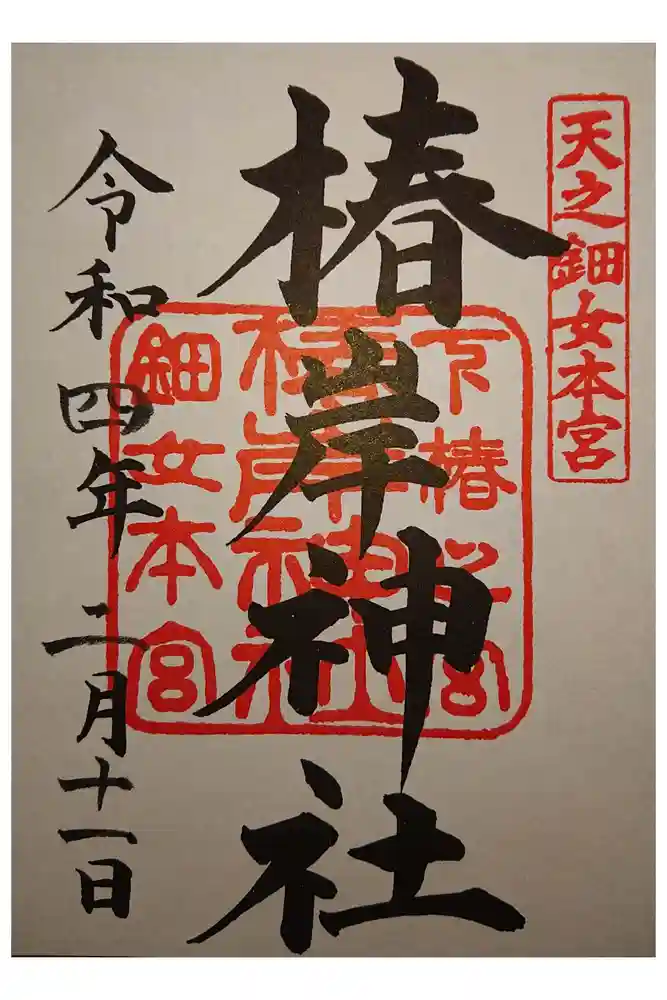 天之鈿女本宮
椿岸神社
令和四年二月十一日
椿岸神社
鈿女本宮